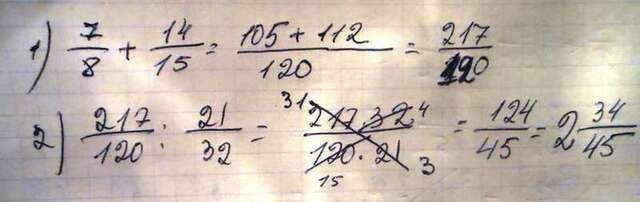 1) 7/8 + 14/15 = (105 + 112)/120 = 217/120
2) 217/120 : 21/32 = (217 · 32)/(120 · 21) 31 4 15 3 = 124/45 = 2 34/45